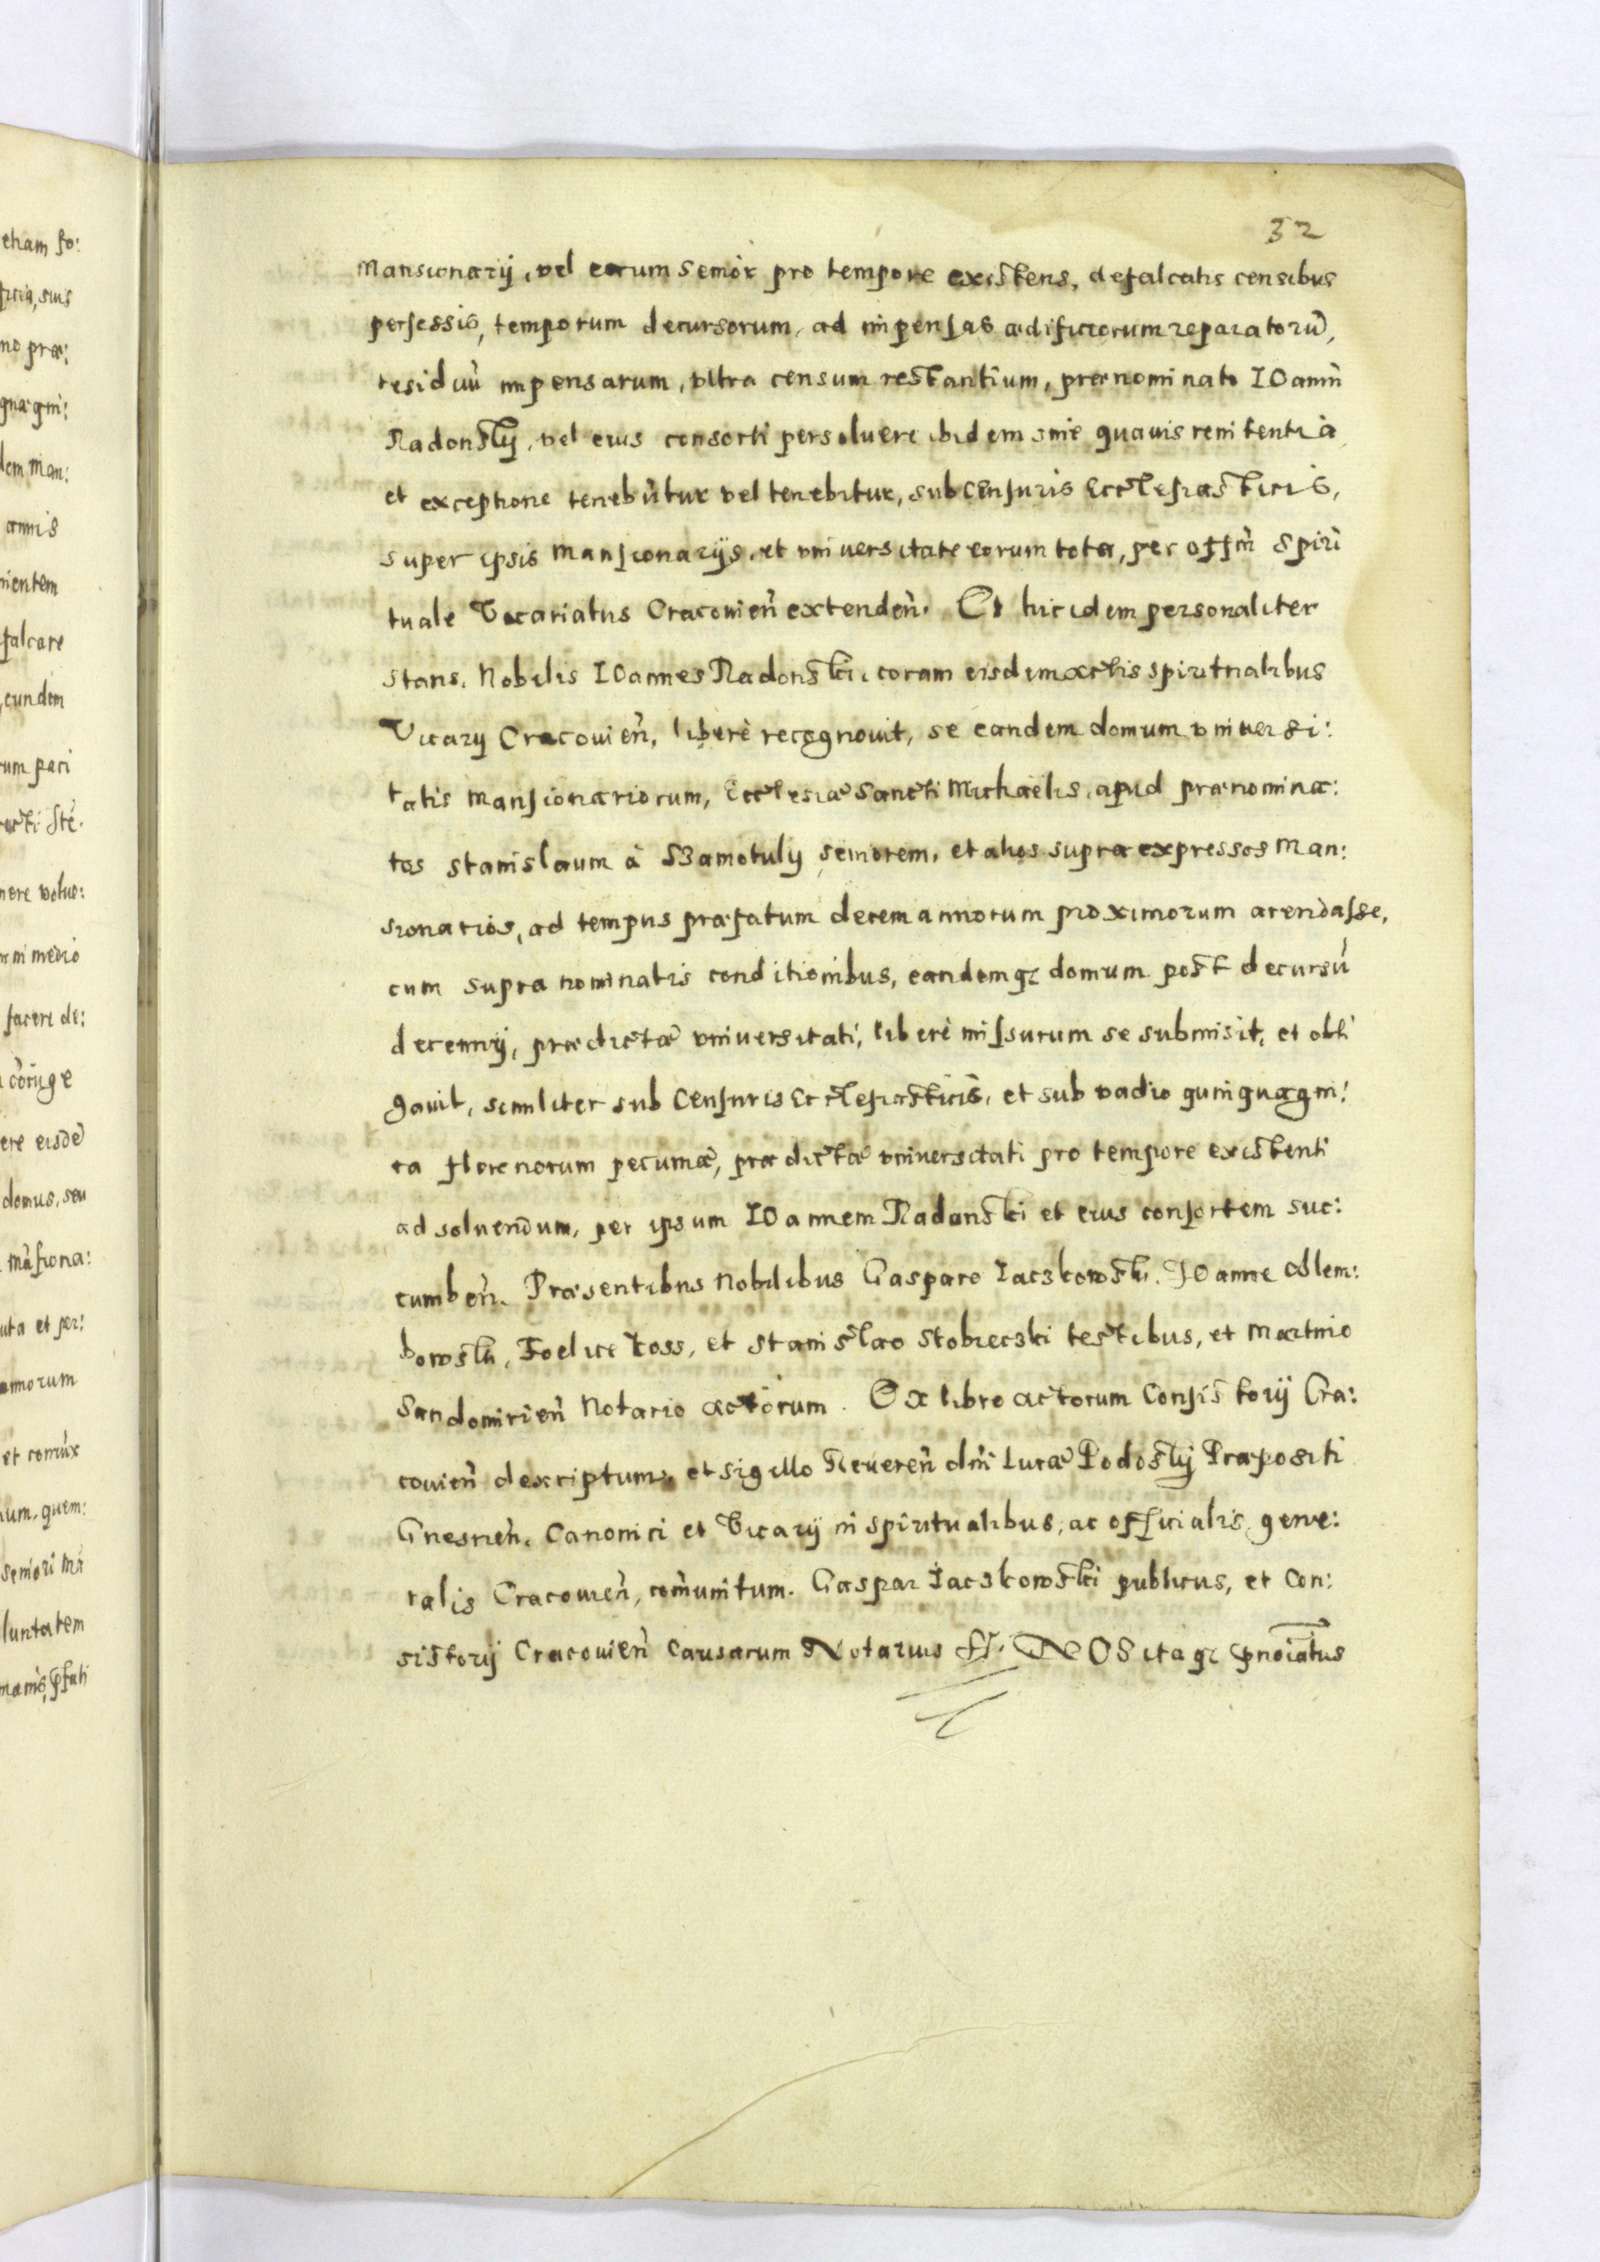 32
Mansionarij, vel eorum Senior pro tempore existens, defalcatis censibus
persessis, temporum decursorum, ad impensas ædificiorum reparatorũ,
residuũ impensarum, vltra censum restantium, prænominato IOanni
Radonskij, vel eius consorti persoluere ibidem sine quauis renitentia
et exceptione tenebũtur vel tenebitur, sub Censuris Ecclesiasticis,
super ipsis Mansionarijs, et vniuersitate eorum tota, per offm̃ Spiri
tuale Vicariatus Cracouien̄ extenden̄. Et hic idem personaliter
stans. Nobilis IOannes Radonski, coram eisdem actis spiritualibus
Vicarij Cracouien̄, liberè recognouit, se eandem domum vniuersi:
tatis Mansionariorum, Ecclesiæ Sancti Michaelis, apud prænomina:
tos Stanislaum à SZamotulij seniorem, et alios supra expressos Man:
sionarios, ad tempus præfatum decem annorum proximorum arendasse,
cum supra nominatis conditionibus, eandemqz domum post decursũ
decennij, prædictæ vniuersitati, liberè missurum se submisit, et obli
gauit, similiter sub Censuris Ecclesiasticis, et sub vadio quinquagin:
ta florenorum pecuniæ, prædictæ vniuersitati pro tempore existenti
ad soluendum, per ipsum IOannem Radonski et eius consortem suc:
cumben̄. Præsentibus Nobilibus Gasparo Iaczkowski. IOanne Chlem:
bowski, Foelice Łoss, et Stanislao Stobieczki testibus, et Martino
Sandomirien̄ Notario actorum. Ex libro actorum Consistorij Cra:
couien̄ descriptum, et sigillo Reueren̄ dn̄i Lucæ Podoskij Præpositi
Gnesnen̄. Canonici et Vicarij in spiritualibus, ac officialis gene:
ralis Cracouien̄, com̃unitum. Gaspar Iaczkowski publicus, et Con:
sistorij Cracouien̄ Causarum Notarius ss. NOS itaqz p̄noiatus